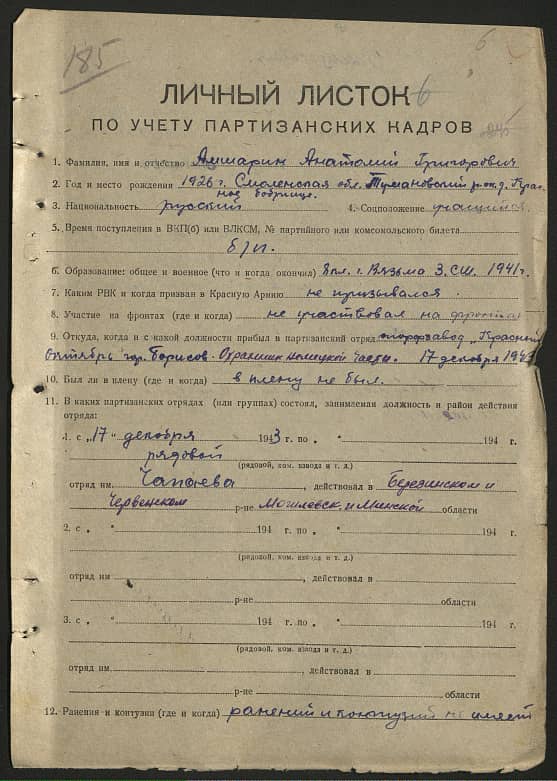 185
6
ЛИЧНЫЙ ЛИСТОК 6
ПО УЧЕТУ ПАРТИЗАНСКИХ КАДРОВ
1. Фамилия, имя и отчество Аммарин Анатолий Григорович
2. Год и место рождения 1926 г. Смоленская обл. Тумановский р-он д. Крас
ное бобрище.
3. Национальность русский 4. Соцположение учащийся.
5. Время поступления в ВКП(б) или ВЛКСМ, № партийного или комсомольского билета
б/п.
6. Образование: общее и военное (что и когда окончил) 8 кл. г. Вязьма 3. СШ. 1941 г.
7. Каким РВК и когда призван в Красную Армию не призывался.
8. Участие на фронтах (где и когда) не участвовал на фронтах
9. Откуда, когда и с какой должности прибыл в партизанский отряд торфзавод „Красный
октябрь" гор. Борисов. Охранник немецкой части. 17 декабря 1943
10. Был ли в плену (где и когда) в плену не был.
11. В каких партизанских отрядах (или группах) состоял, занимаемая должность и район действия
отряда:
1. с „17" декабря 1943 г. по „ " 194 г.
рядовой
(рядовой, ком. взвода и т. д.)
отряд им. Чапаева, действовал в Березинском и
Червенском р-не Могилевск. и Минской области
2. с „ " 194 г. по „ " 194 г.
(рядовой, ком. взвода и т. д.)
отряд им. , действовал в
р-не области
3. с „ " 194 г. по „ " 194 г.
(рядовой, ком. взвода и т. д.)
отряд им. , действовал в
р-не области
12. Ранения и контузии (где и когда) ранений и контузий не имеет